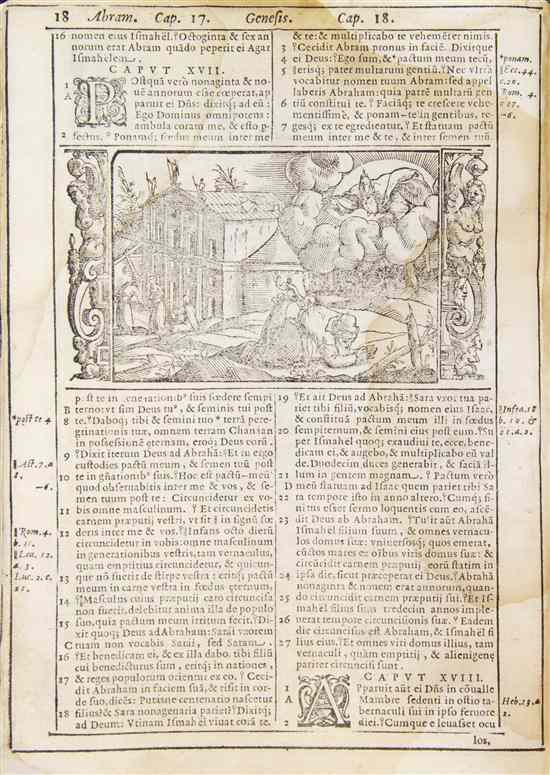 18 Abram. Cap. 17. Genesis. Cap. 18.
16 nomen eius Ismahēl. Octoginta & sex an
norum erat Abram quādo peperit ei Agar
Ismahelem.
CAPVT XVII.
1 POstquā verò nonaginta & no-
A uē annorum esse cœperat, ap
paruit ei Dñs: dixitq; ad eū:
Ego Dominus omnipotens:
ambula coram me, & esto p
2 fectus. *Ponamq; fœdus meum inter me
& te: & multiplicabo te vehemēter nimis.
3 Cecidit Abram pronus in faciē. Dixitque
4 ei Deus: Ego sum, & *pactum meum tecū,
5 erisq; pater multarum gentiū. Nec vltrà
vocabitur nomen tuum Abram: sed appel
laberis Abraham: quia patrē multarū gen
6 tiū constitui te. Faciāq; te crescere vehe-
mentissimè, & ponam-te in gentibus, re-
7 gesq; ex te egredientur. Et statuam pactū
meum inter me & te, & inter semen tuū
*ponam.
Ecc. 44.
c. 20.
Rom. 4.
c. 17.
-6.
post te in generationib⁹ suis fœdere sempi
B terno: vt sim Deus tu⁹, & seminis tui post
8 te. Daboq; tibi & semini tuo *terrā pere-
grinationis tuæ, omnem terram Chanaan
in possessionē æternam, eroq; Deus eorū.
9 Dixit iterum Deus ad Abrahā: Et tu ergo
custodies pactū meum, & semen tuū post
10 te in gñationib⁹ suis. Hoc est pactū meū
quod obseruabitis inter me & vos, & se-
men tuum post te: Circuncidetur ex vo-
11 bis omne masculinum. Et circuncidetis
carnem præputij vestri, vt sit in signū fœ
12 deris inter me & vos. Infans octo dierū
circuncidetur in vobis: omne masculinum
in generationibus vestris, tam vernaculus,
quam emptitius circuncidetur, & quicun-
13 que nō fuerit de stirpe vestra: eritq; pactū
meum in carne vestra in fœdus æternum,
14 Masculus cuius præputij caro circuncisa
non fuerit, delebitur anima illa de populo
15 suo, quia pactum meum irritum fecit. Di-
xit quoq; Deus ad Abraham: Sarai vxorem
C tuam non vocabis Sarai, sed Saram.
16 Et benedicam ei, & ex illa dabo tibi filiū
cui benedicturus sum, eritq; in nationes,
17 & reges populorum orientur ex eo. Ceci-
dit Abraham in faciem suā, & risit in cor-
de suo, dicēs: Putasne centenario nascetur
18 filius? & Sara nonagenaria pariet? Dixitq;
ad Deum: Vtinam Ismahel viuat corā te.
*post te 4
Act. 7. a
8.
-6.
Rom. 4.
b. 11.
Luc. 12.
a. 3.
Luc. 2. c.
21.
19 Et ait Deus ad Abrahā: Sara vxor tua pa-
riet tibi filiū, vocabisq; nomen eius Isaac,
& constituā pactum meum illi in fœdus
20 sempiternum, & semini eius post eum. Su
per Ismahel quoq; exaudiui te, ecce, bene-
dicam ei, & augebo, & multiplicabo eū val
de. Duodecim duces generabit, & faciā il-
21 lum in gentem magnam. Pactum verò
D meū statuam ad Isaac quem pariet tibi Sa
22 ra tempore isto in anno altero. Cumq; fi-
nitus esset sermo loquentis cum eo, ascē-
23 dit Deus ab Abraham. Tulit aūt Abrahā
Ismahel filium suum, & omnes vernacu-
los domus suæ: vniuersosq; quos emerat,
cūctos mares ex oībus viris domus suæ: &
circūcidit carnem præputij eorū statim in
24 ipsa die, sicut præceperat ei Deus. Abrahā
nonaginta & nouem erat annorum, quan-
25 do circuncidit carnem præputij sui. Et Is-
mahēl filius eius tredecim annos imple-
26 uerat tempore circuncisionis suæ. Eadem
die circuncisus est Abraham, & Ismahēl fi
27 lius eius. Et omnes viri domus illius, tam
vernaculi, quàm emptitij, & alienigenę
pariter circuncisi sunt.
CAPVT XVIII.
1 APparuit aūt ei Dñs in cōualle
A Mambre sedenti in ostio ta-
bernaculi sui in ipso feruore
2 diei. Cumque eleuasset ocu
los,
Infra. 18
b. 10. &
21. a. 2.
Heb. 13. a
2.